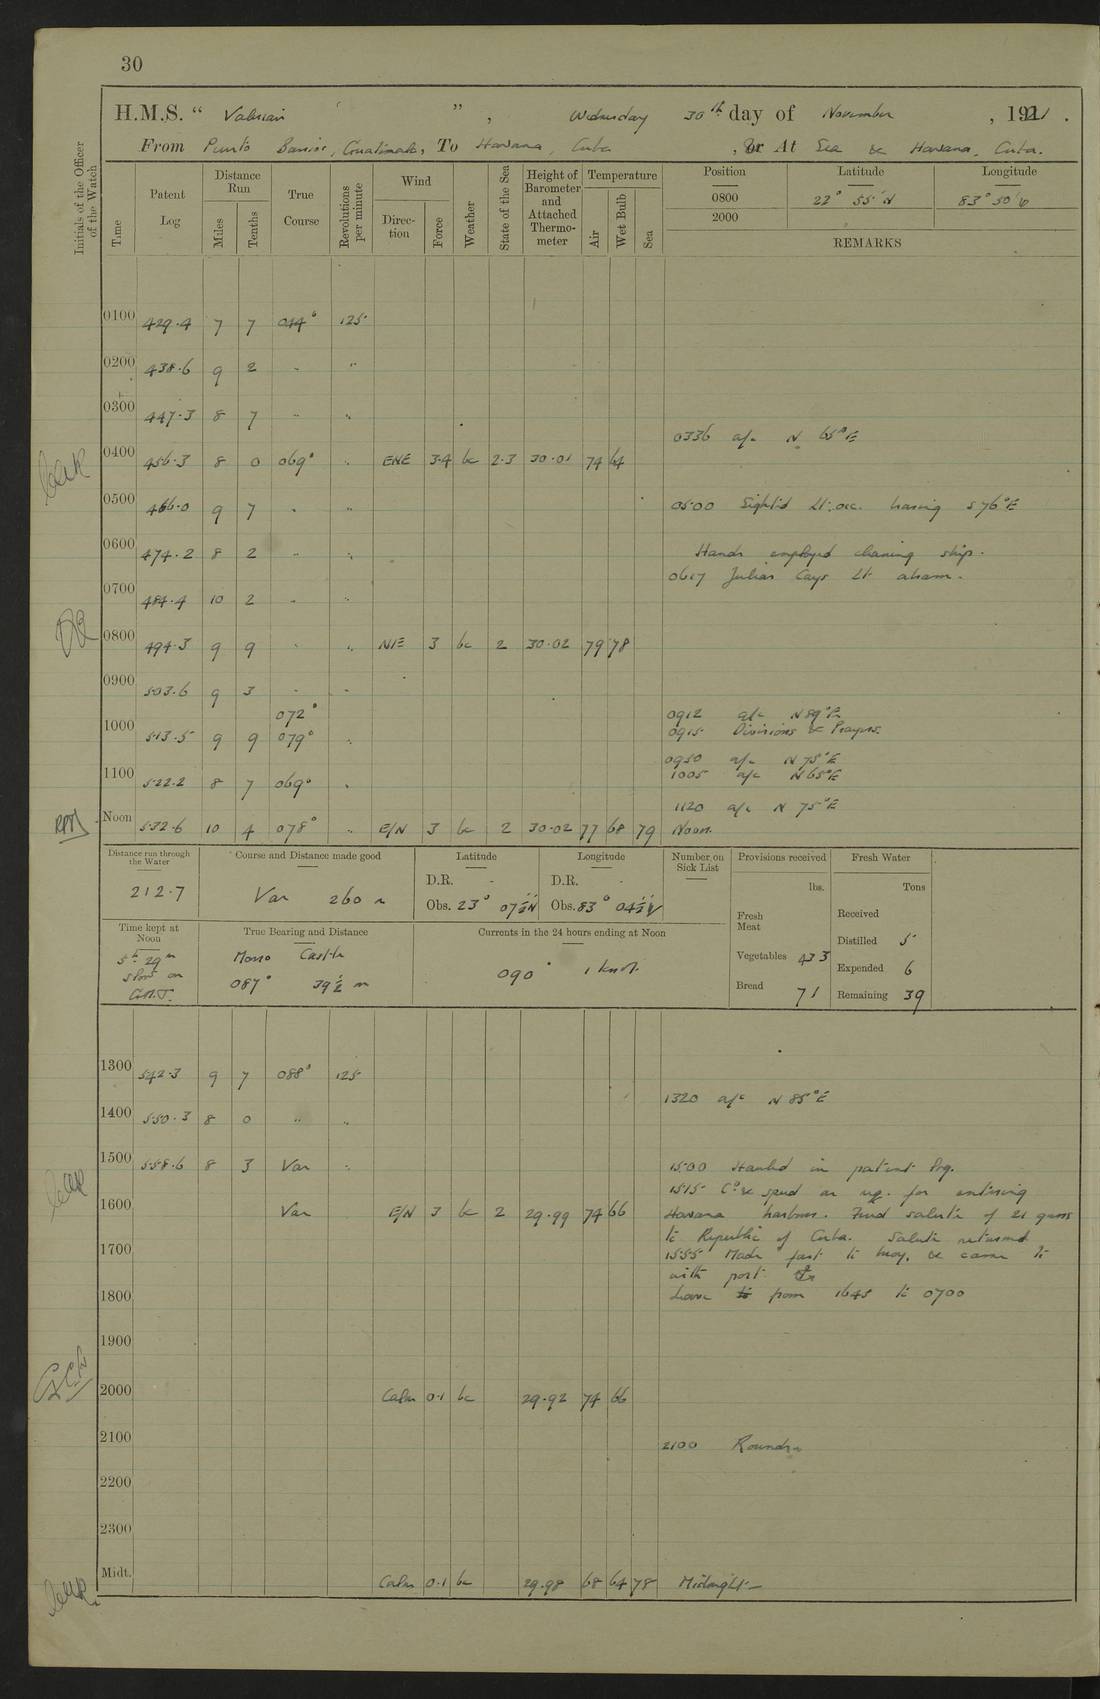 30
H.M.S. “ Valerian ”, Wednesday 30th day of November, 1921.
From Puerto Barrios, Guatemala, To Havana, Cuba, or At Sea & Havana, Cuba.
Initials of the Officer of the Watch
Time
Patent Log
Distance Run
Miles
Tenths
True Course
Revolutions per minute
Wind
Direction
Force
Weather
State of the Sea
Height of Barometer and Attached Thermometer
Temperature
Air
Wet Bulb
Sea
Position Latitude Longitude
0800 22° 55' N 83° 50' W
2000
REMARKS
0100 429.4 7 7 044° 125
0200 438.6 9 2 " "
0300 447.3 8 7 " "
0336 a/c N 65° E
0400 456.3 8 0 069° " ENE 3.4 bc 2.3 30.01 74 64
0500 466.0 9 7 " " 0500 Sighted Lt. occ. bearing S 76° E
0600 474.2 8 2 " " Hands employed cleaning ship.
0617 Jutias Cays Lt abeam.
0700 484.4 10 2 " "
0800 494.3 9 9 " " N/E 3 bc 2 30.02 79 78
0900 503.6 9 3 " "
072° 0912 a/c N 89° E
1000 513.5 9 9 079° " 0915 Divisions & Prayers.
0950 a/c N 75° E
1100 522.2 8 7 069° " 1005 a/c N 65° E
1120 a/c N 75° E
Noon 532.6 10 4 078° " E/N 3 bc 2 30.02 77 68 79 Noon.
Distance run through the Water
212.7
Course and Distance made good
Var 260 m
Latitude
D.R. -
Obs. 23° 07½' N
Longitude
D.R. -
Obs. 83° 04½' W
Number on Sick List
Provisions received
lbs.
Fresh Meat
Vegetables 433
Bread 71
Fresh Water
Tons
Received
Distilled 5
Expended 6
Remaining 39
Time kept at Noon
5h 29m
slow on
G.M.T.
True Bearing and Distance
Morro Castle
087° 39½ m
Currents in the 24 hours ending at Noon
090° 1 knot.
1300 542.3 9 7 088° 125
1320 a/c N 85° E
1400 550.3 8 0 " "
1500 558.6 8 3 Var " 1500 Hauled in patent log.
1515 Co & speed as req. for entering
1600 Var E/N 3 bc 2 29.99 74 66 Havana harbour. Fired salute of 21 guns
to Republic of Cuba. Salute returned
1700 1555 Made fast to buoy, & came to
with port
1800 Leave from 1645 to 0700
1900
2000 Calm 0.1 bc 29.92 74 66
2100 2100 Rounds
2200
2300
Midt. Calm 0.1 bc 29.98 68 64 78 Midnight